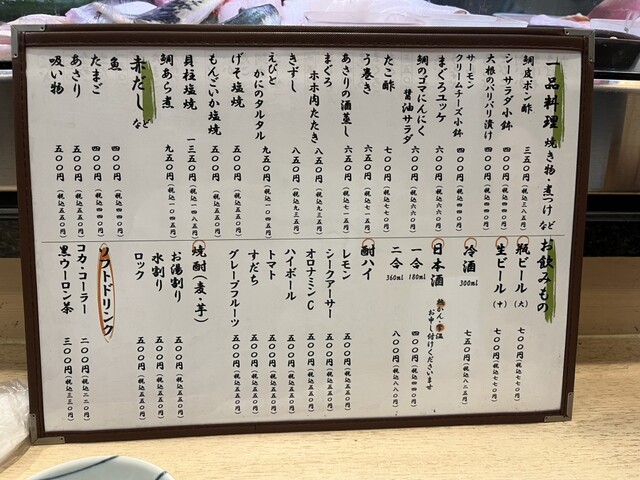 一品料理 焼き物・煮つけ など
鯛皮ポン酢 三五〇円（税込三八五円）
シーサラダ小鉢 四〇〇円（税込四四〇円）
大根のパリパリ漬け 四〇〇円（税込四四〇円）
サーモンクリームチーズ小鉢 四〇〇円（税込四四〇円）
まぐろユッケ 六〇〇円（税込六六〇円）
鯛のゴマにんにく醤油サラダ 六〇〇円（税込六六〇円）
たこ酢 七〇〇円（税込七七〇円）
う巻き 六五〇円（税込七一五円）
あさりの酒蒸し 六五〇円（税込七一五円）
まぐろホホ肉たたき 八五〇円（税込九三五円）
きずし 八五〇円（税込九三五円）
えびとかにのタルタル 九五〇円（税込一〇四五円）
げそ塩焼 五〇〇円（税込五五〇円）
もんごいか塩焼 五〇〇円（税込五五〇円）
貝柱塩焼 一三五〇円（税込一四八五円）
鯛あら煮 九五〇円（税込一〇四五円）
赤だし など
魚 四〇〇円（税込四四〇円）
たまご 四〇〇円（税込四四〇円）
あさり 五〇〇円（税込五五〇円）
吸い物 五〇〇円（税込五五〇円）
お飲みもの
瓶ビール（大） 七〇〇円（税込七七〇円）
生ビール（中） 七〇〇円（税込七七〇円）
冷酒 300ml 七五〇円（税込八二五円）
日本酒 熱かん・常温 お申し付けくださいませ
一合 180ml 四〇〇円（税込四四〇円）
二合 360ml 八〇〇円（税込八八〇円）
酎ハイ
レモン 五〇〇円（税込五五〇円）
シークアーサー 五〇〇円（税込五五〇円）
オロナミンC 五〇〇円（税込五五〇円）
ハイボール 五〇〇円（税込五五〇円）
トマト 五〇〇円（税込五五〇円）
すだち 五〇〇円（税込五五〇円）
グレープフルーツ 五〇〇円（税込五五〇円）
焼酎（麦・芋）
お湯割り 五〇〇円（税込五五〇円）
水割り 五〇〇円（税込五五〇円）
ロック 五〇〇円（税込五五〇円）
ソフトドリンク
コカ・コーラー 二〇〇円（税込二二〇円）
黒ウーロン茶 三〇〇円（税込三三〇円）